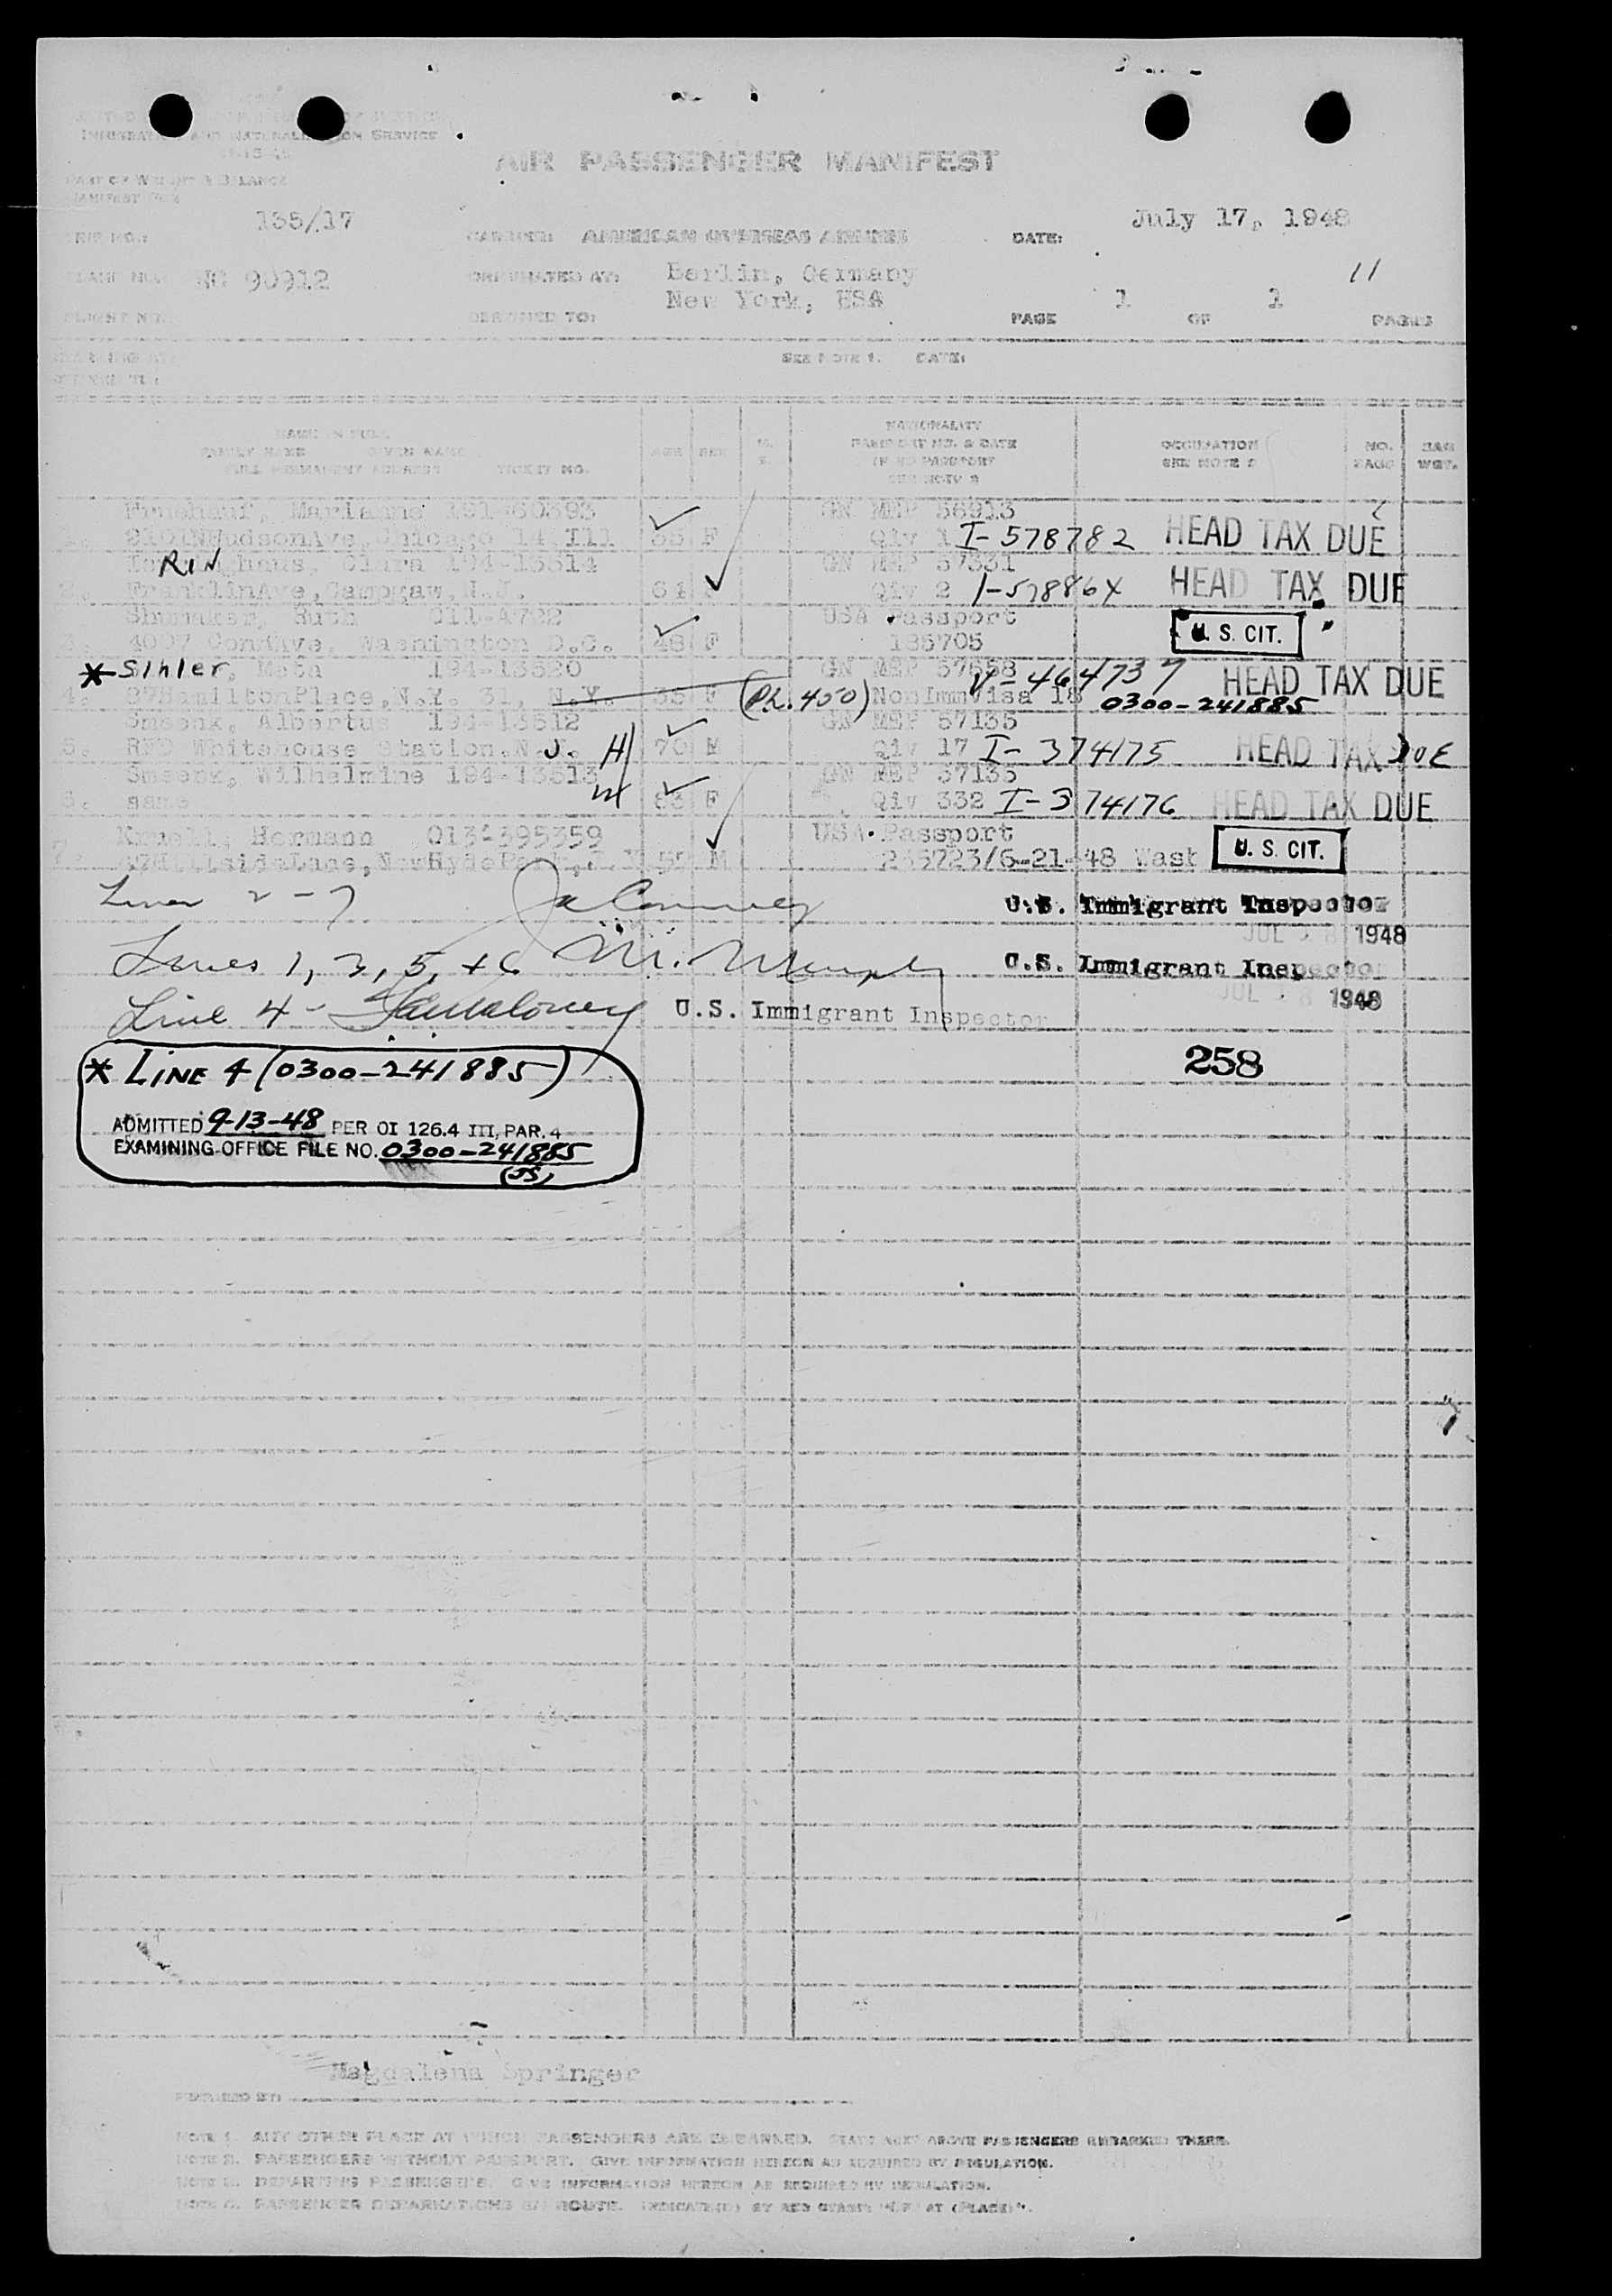 IMMIGRATION AND NATURALIZATION SERVICE
AIR PASSENGER MANIFEST
PART OF WEIGHT & BALANCE
MANIFEST FOR
TRIP NO.: 135/17 CARRIER: AMERICAN OVERSEAS AIRLINES DATE: July 17, 1948
PLANE NO. NC 90912 ORIGINATED AT: Berlin, Germany 11
DESTINED TO: New York, USA PAGE 1 OF 1 PAGES
SEE NOTE 1. DATE:
NAME IN FULL
FAMILY NAME GIVEN NAME
FULL PERMANENT ADDRESS TICKET NO.
AGE SEX M. S.
NATIONALITY
PASSPORT NO. & DATE
IF NO PASSPORT
SEE NOTE 2
OCCUPATION
SEE NOTE
NO. BAGS BAG WGT.
Marianne 191-60393 GN MEP 56913
Chicago 14, Ill F Qiv I-578782 HEAD TAX DUE
RIN Clara 194-13514 GN MEP 57331
2. FranklinAve, Campgaw, N.J. 61 Qiv 2 I-57886X HEAD TAX DUE
Shumaker, Ruth 011-4722 USA Passport
4007 ConnAve, Washington D.C. 48 F 185705 U. S. CIT.
* Sihler, Meta 194-13520 GN MEP 57558 V-464737 HEAD TAX DUE
4. 37HamiltonPlace, N.Y. 31, N.Y. 35 F (Ph. 450) NonImmVisa 18 0300-241885
Smeenk, Albertus 194-13512 GN MEP 57135
5. RFD Whitehouse Station, N.J. H 70 M Qiv 17 I-374175 HEAD TAX DUE
Smeenk, Wilhelmine 194-13513 GN MEP 57135
6. same W 63 F Qiv 332 I-374176 HEAD TAX DUE
Hermann 013-395359 USA Passport
7. HillsideLane, NewHydePark, 55 M 235723/6-21-48 Wash U. S. CIT.
U.S. Immigrant Inspector
JUL 18 1948
Lines 1, 2, 5, + 6 M. Murphy U.S. Immigrant Inspector
JUL 18 1948
Line 4 - U.S. Immigrant Inspector
258
* LINE 4 (0300-241885)
ADMITTED 9-13-48 PER OI 126.4 III, PAR. 4
EXAMINING OFFICE FILE NO. 0300-241885
(JS)
Magdalena Springer
PREPARED BY:
NOTE 1. ANY OTHER PLACE AT WHICH PASSENGERS ARE EMBARKED. STATE NEXT ABOVE PASSENGERS EMBARKED THERE.
NOTE 2. PASSENGERS WITHOUT PASSPORT. GIVE INFORMATION HEREON AS REQUIRED BY REGULATION.
NOTE 3. DEPARTING PASSENGERS. GIVE INFORMATION HEREON AS REQUIRED BY REGULATION.
NOTE 4. PASSENGER DEBARKATIONS EN ROUTE. INDICATE(D) BY RED STAMP "OFF AT (PLACE)".